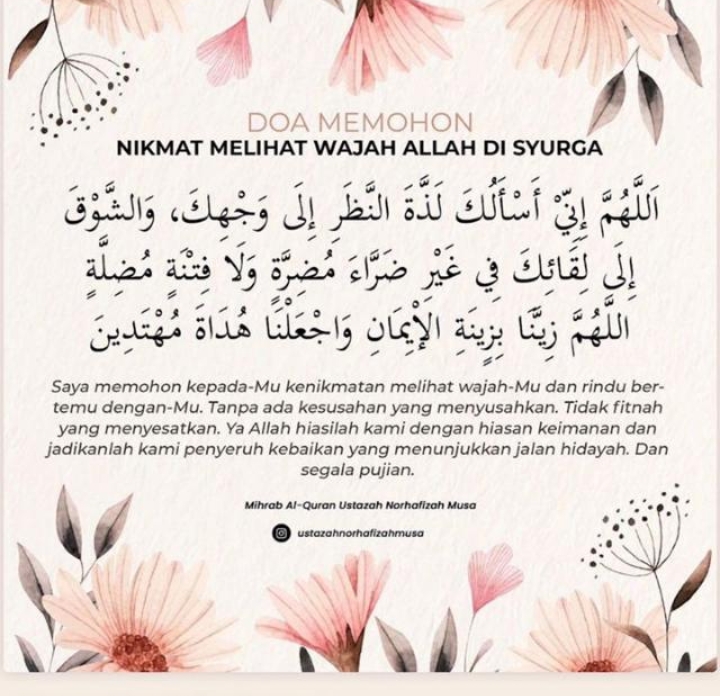 DOA MEMOHON
NIKMAT MELIHAT WAJAH ALLAH DI SYURGA
اَللَّهُمَّ إِنِّيْ أَسْأَلُكَ لَذَّةَ النَّظَرِ إِلَى وَجْهِكَ، وَالشَّوْقَ
إِلَى لِقَائِكَ فِي غَيْرِ ضَرَّاءَ مُضِرَّةٍ وَلَا فِتْنَةٍ مُضِلَّةٍ
اللَّهُمَّ زَيِّنَّا بِزِينَةِ الْإِيمَانِ وَاجْعَلْنَا هُدَاةً مُهْتَدِينَ
Saya memohon kepada-Mu kenikmatan melihat wajah-Mu dan rindu ber-
temu dengan-Mu. Tanpa ada kesusahan yang menyusahkan. Tidak fitnah
yang menyesatkan. Ya Allah hiasilah kami dengan hiasan keimanan dan
jadikanlah kami penyeruh kebaikan yang menunjukkan jalan hidayah. Dan
segala pujian.
Mihrab Al-Quran Ustazah Norhafizah Musa
ustazahnorhafizahmusa